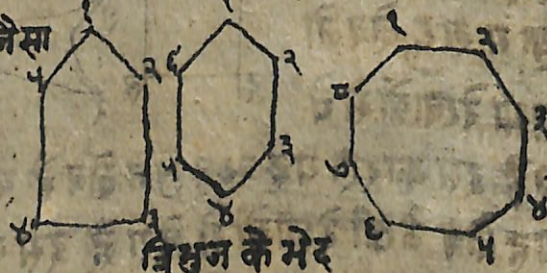 जैसा
१ २ ३ ४ ५
१ २ ३ ४ ५ ६
१ २ ३ ४ ५ ६ ७ ८
त्रिभुज के भेद